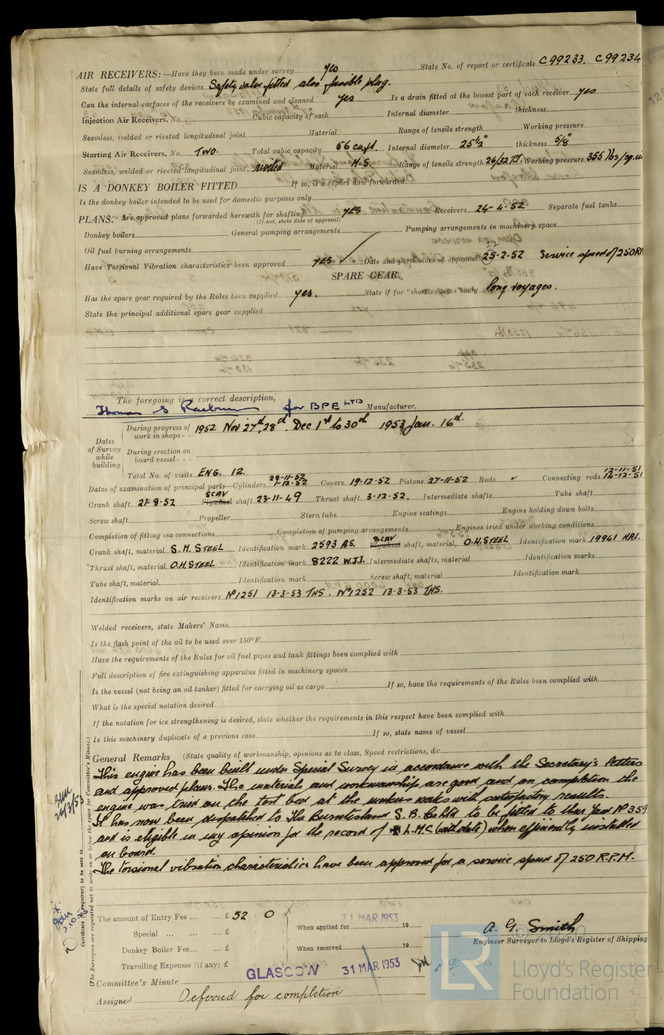 AIR RECEIVERS:—Have they been made under survey yes State No. of report or certificate C 99233. C 99234
State full details of safety devices Safety valve fitted also fusible plug.
Can the internal surfaces of the receivers be examined and cleaned yes Is a drain fitted at the lowest part of each receiver yes
Injection Air Receivers, No. Cubic capacity of each Internal diameter thickness
Seamless, welded or riveted longitudinal joint Material Range of tensile strength Working pressure
Starting Air Receivers, No. TWO. Total cubic capacity 66 cu.ft. Internal diameter 25½" thickness 5/8"
Seamless, welded or riveted longitudinal joint riveted Material M.S. Range of tensile strength 26/32 T. Working pressure 355 lbs/sq.in
IS A DONKEY BOILER FITTED If so, is a report now forwarded
Is the donkey boiler intended to be used for domestic purposes only
PLANS. Are approved plans forwarded herewith for shafting YES Receivers 24-4-52. Separate fuel tanks
(If not, state date of approval)
Donkey boilers General pumping arrangements Pumping arrangements in machinery space
Oil fuel burning arrangements
Have Torsional Vibration characteristics been approved YES Date and particulars of approval 25-2-52 Service speed of 250 R
SPARE GEAR.
Has the spare gear required by the Rules been supplied yes. State if for "short voyages only" long voyages.
State the principal additional spare gear supplied
The foregoing is a correct description,
for BPE LTD Manufacturer.
Dates of Survey while building
During progress of work in shops - - 1952 Nov 27th, 28th. Dec 1st to 30th 1953 Jan. 16th.
During erection on board vessel - - -
Total No. of visits ENG. 12.
Dates of examination of principal parts—Cylinders 28-11-52 1-12-52 Covers 19-12-52 Pistons 27-11-52 Rods Connecting rods 12-11-51 14-12-51
Crank shaft 21-8-52 SCAV shaft 23-11-49 Thrust shaft 3-12-52. Intermediate shafts Tube shaft
Screw shaft Propeller Stern tube Engine seatings Engine holding down bolts
Completion of fitting sea connections Completion of pumping arrangements Engines tried under working conditions
Crank shaft, material S.M. STEEL Identification mark 2593 A.S. SCAV shaft, material O.H. STEEL Identification mark 19941
Thrust shaft, material O.H. STEEL Identification mark 8222 W.J.J. Intermediate shafts, material Identification marks
Tube shaft, material Identification mark Screw shaft, material Identification mark
Identification marks on air receivers No 1251 13-3-53 THS. No 1252 13-3-53 THS.
Welded receivers, state Makers' Name
Is the flash point of the oil to be used over 150°F
Have the requirements of the Rules for oil fuel pipes and tank fittings been complied with
Full description of fire extinguishing apparatus fitted in machinery spaces
Is the vessel (not being an oil tanker) fitted for carrying oil as cargo If so, have the requirements of the Rules been complied with
What is the special notation desired
If the notation for ice strengthening is desired, state whether the requirements in this respect have been complied with
Is this machinery duplicate of a previous case If so, state name of vessel
General Remarks (State quality of workmanship, opinions as to class, Speed restrictions, &c
This engine has been built under Special Survey in accordance with the Secretary's letters
and approved plans. The materials and workmanship are good and on completion the
engine was tried on the test bed at the makers works with satisfactory results.
It has now been despatched to The Burntisland S.B. Co Ltd to be fitted to their Yard No 359
and is eligible in my opinion for the record of L.M.C. (with date) when efficiently installed
on board.
The torsional vibration characteristics have been approved for a service speed of 250 R.P.M.
The amount of Entry Fee ... ... £ 52 : 0 : When applied for 31 MAR 1953 19
Special ... ... £
Donkey Boiler Fee... ... £ When received 19
Travelling Expenses (if any) £
A. G. Smith
Engineer Surveyor to Lloyd's Register of Shipping
Committee's Minute GLASGOW 31 MAR 1953
Assigned Deferred for completion
LR Lloyd's Register Foundation